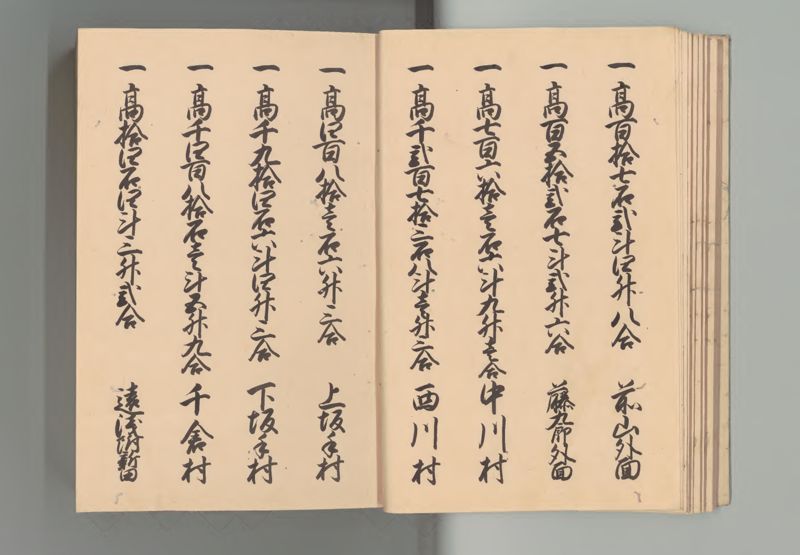 一高百拾七石弐斗四升八合 前山外面
一高百五拾弐石七斗弐升六合 藤九郎外面
一高七百六拾壱石六斗九升壱合 中川村
一高千弐百七拾三石八斗壱升三合 西川村
一高四百八拾壱石六升三合 上坂手村
一高千九拾四石六斗四升三合 下坂手村
一高千四百八拾石壱斗五升九合 千倉村
一高拾四石四斗三升弐合 遠 新田